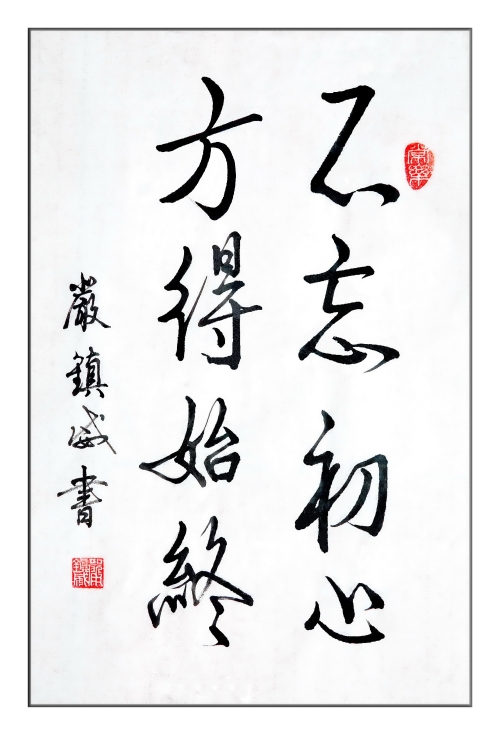 不忘初心
方得始终
嚴鎮威書